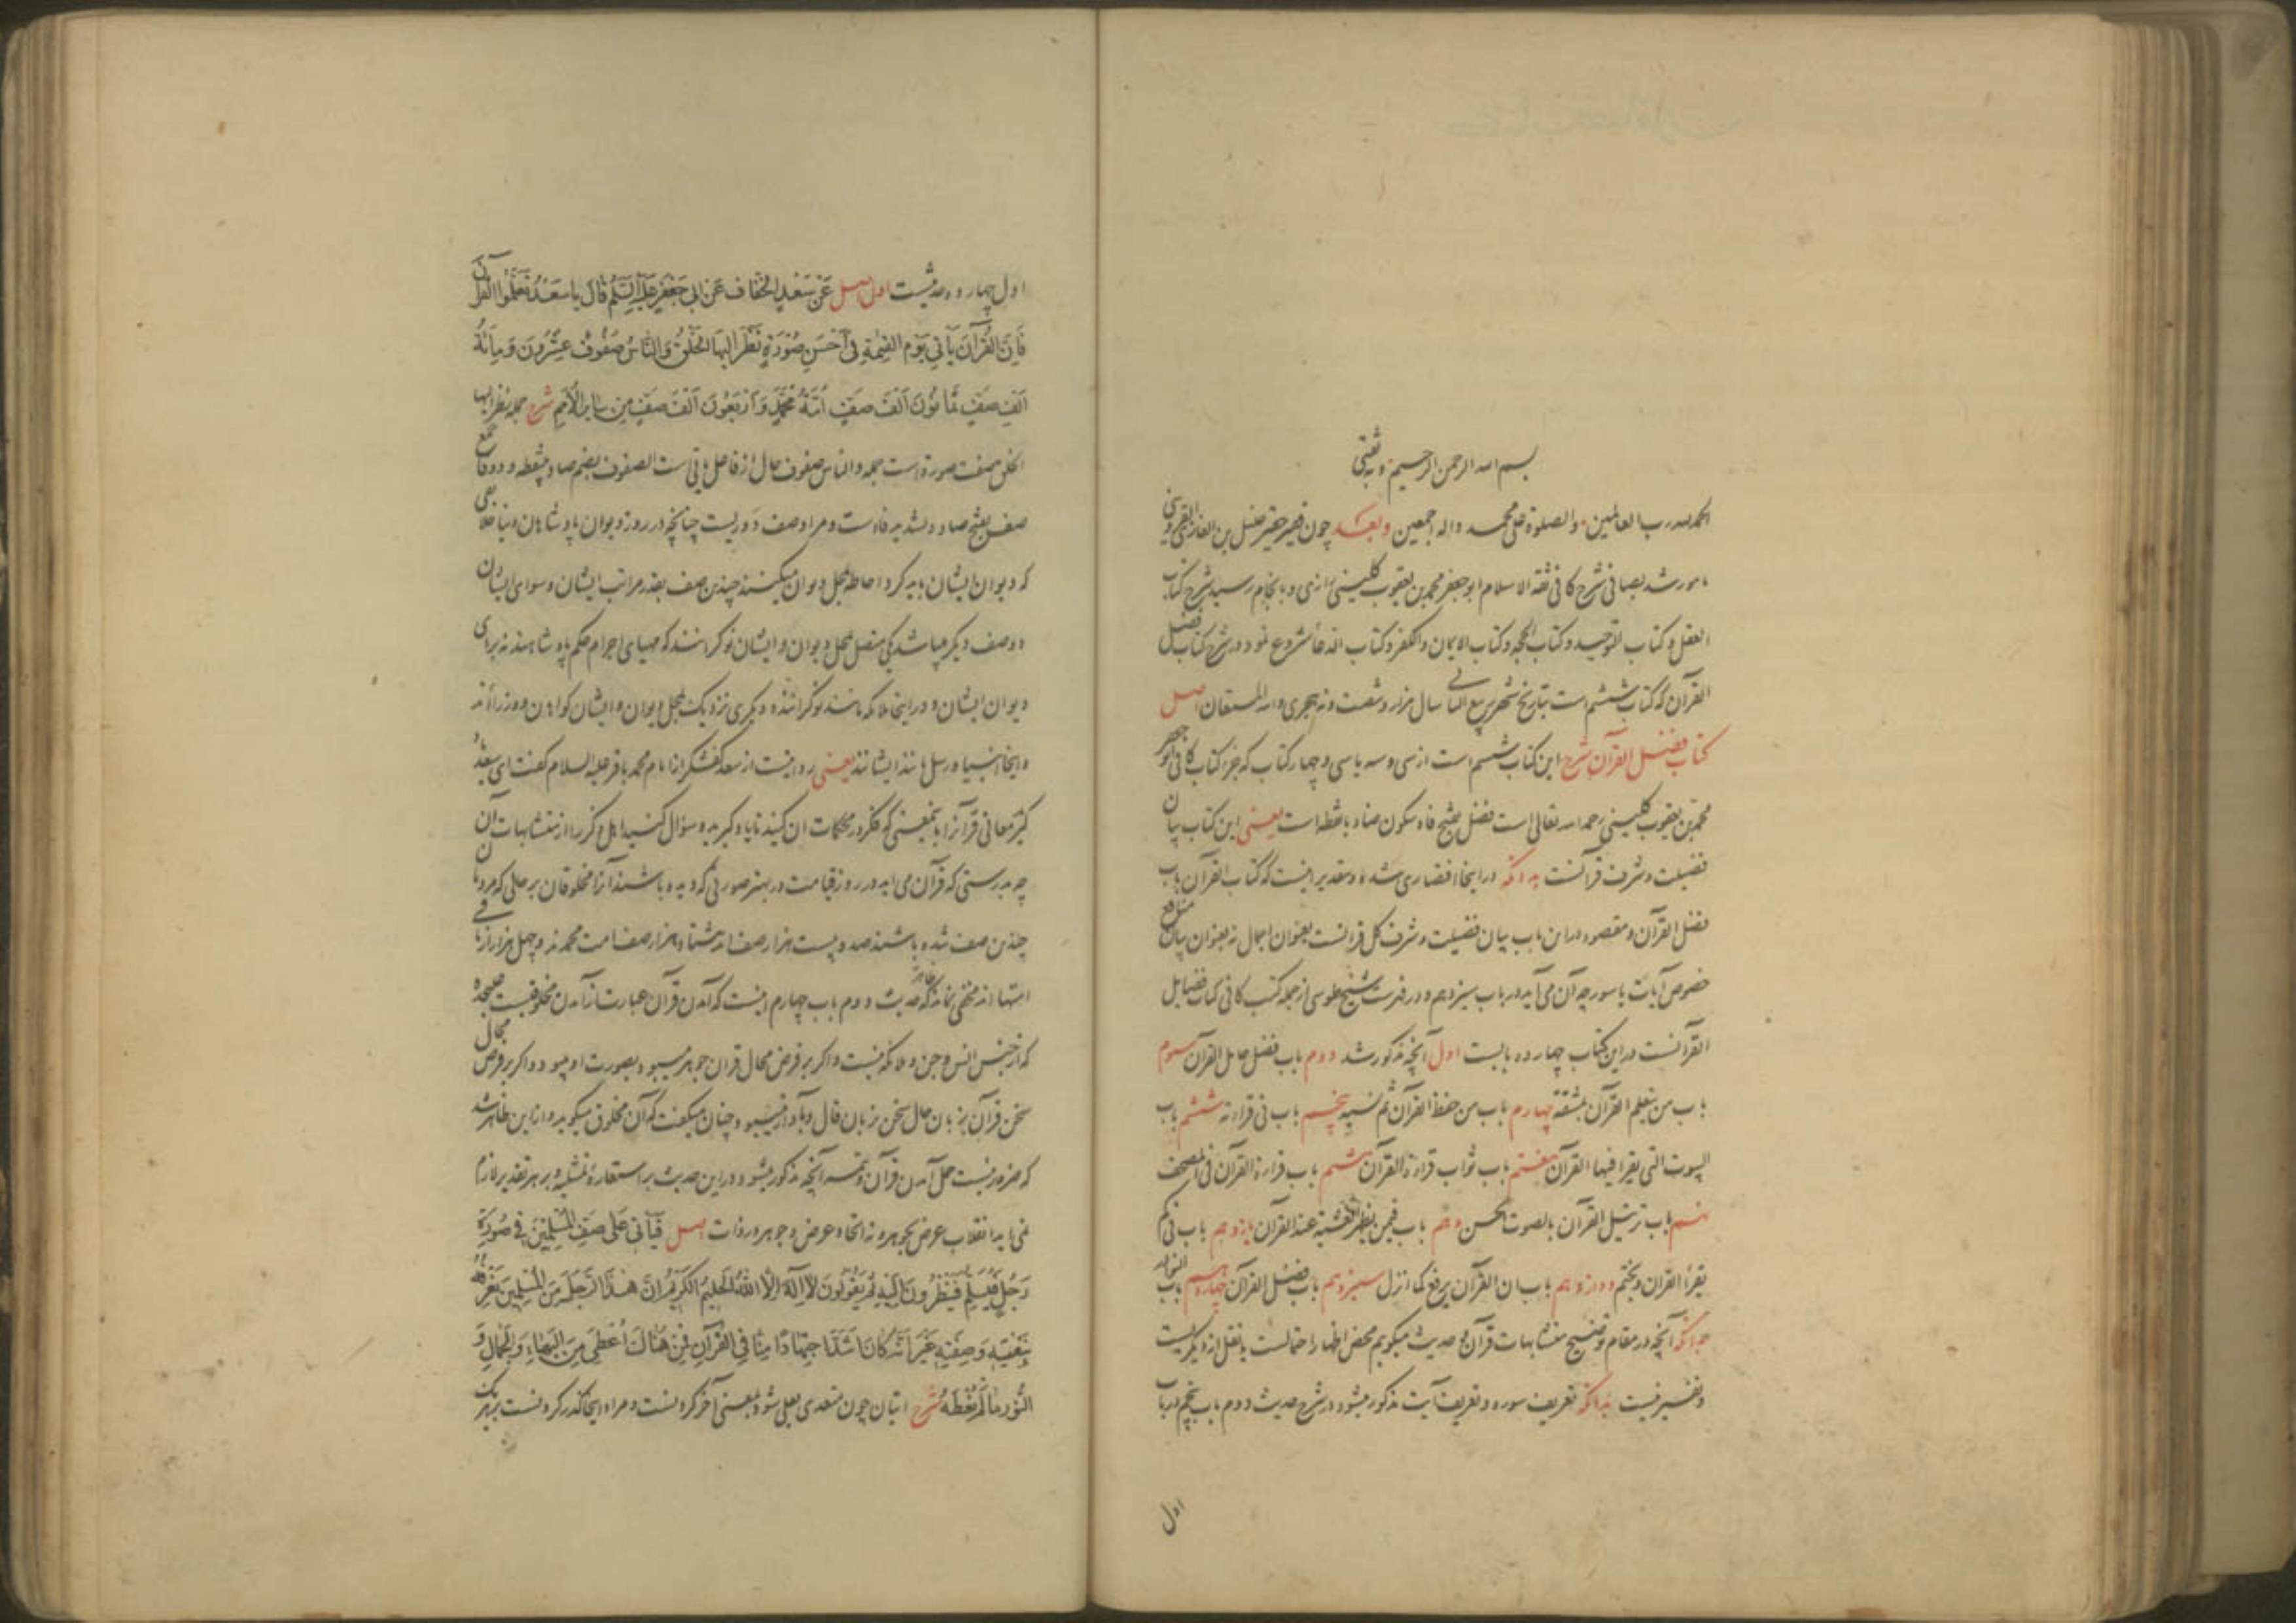 بسم الله الرحمن الرحیم وبه ثقتی
الحمد لله رب العالمین والصلوة علی محمد واله اجمعین وبعد چون فقیر حقیر خلیل بن الغازی القزوینی
مامور شد بصافی شرح کافی ثقة الاسلام ابو جعفر محمد بن یعقوب کلینی رازی و بانجام رسید شرح کتاب
العقل و کتاب التوحید و کتاب الحجه و کتاب الایمان والکفر و کتاب الدعا شروع نمود در شرح کتاب فضل
القرآن که کتاب ششم است بتاریخ شهر ربیع الثانی سال هزار و شصت و نه هجری والله المستعان اصل
کتاب فضل القرآن شرح این کتاب ششم است از سی و سه یا سی و چهار کتاب که جزء کتاب کافی ابو جعفر
محمد بن یعقوب کلینی رحمه الله تعالی است فضل بفتح فاء و سکون ضاد با نقطه است یعنی این کتاب بیان
فضیلت و شرف قرآنست بدانکه در اینجا اختصاری شده و تقدیر اینست که کتاب القرآن باب
فضل القرآن و مقصود در این باب بیان فضیلت و شرف کل قرآنست بعنوان اجمال نه بعنوان بیان منافع
خصوص آیات یا سور چه آن می آید در باب سیزدهم و در فهرست شیخ طوسی از جمله کتب کافی کتاب فضایل
القرآنست در این کتاب چهارده بابست اول آنچه مذکور شد دوم باب فضل حامل القرآن سوم
باب من یتعلم القرآن بمشقة چهارم باب من حفظ القرآن ثم نسیه پنجم باب فی قراءته ششم باب
البیوت التی یقرا فیها القرآن هفتم باب ثواب قراءة القرآن هشتم باب قراءة القرآن فی المصحف
نهم باب ترتیل القرآن بالصوت الحسن دهم باب فیمن یظهر الغشیة عند القرآن یازدهم باب فی کم
یقرأ القران و یختم دوازدهم باب ان القرآن یرفع کما انزل سیزدهم باب فضل القرآن چهاردهم باب النوادر
بدانکه آنچه در مقام توضیح متشابهات قرآن و حدیث میگویم محض اظهار احتمالست یا نقل از دیگریست
و تفسیر نیست بدانکه تعریف سوره و تعریف آیت مذکور میشود در شرح حدیث دوم باب پنجم در باب
اول
اول چهارده حدیثست اول اصل عَنْ سَعْدٍ الخَفّافِ عَنْ اَبی جَعْفَرٍ عَلَیْهِ السَّلامُ قالَ یا سَعْدُ تَعَلَّمُوا القُرْآنَ
فَاِنَّ القُرْآنَ یَأْتِی یَوْمَ القِیٰمَةِ فِی اَحْسَنِ صُوْرَةٍ نَظَرَ اِلَیْهَا الخَلْقُ وَالنّاسُ صُفُوفٌ عِشْرُونَ وَ مِائَةُ
اَلْفِ صَفٍّ ثَمانُوْنَ اَلْفَ صَفٍّ اُمَّةُ مُحَمَّدٍ وَ اَرْبَعُونَ اَلْفَ صَفٍّ مِنْ سایِرِ الاُمَمِ شرح جمله نظر الیها
الخلق صفت صورة است جمله والناس صفوف حال از فاعل یاتی است الصفوف بضم صاد بینقطه و دو فا جمع
صف بفتح صاد و تشدید فاء است و مراد صف دوریست چنانچه در روز دیوان پادشاهان دنیا جمعی
که دیوان ایشان باید کرد احاطه محل دیوان میکنند چندین صف بقدر مراتب ایشان و سوای ایشان
دو صف دیگر میباشد یکی متصل محل دیوان و ایشان نوکرانند که مهیای اجرام حکم پادشاهند نه برای
دیوان ایشان و در اینجا ملائکه مانند نوکرانند و دیگری نزدیک محل دیوان و ایشان گواهان و وزراءند
و اینجا انبیا و رسل مانند ایشانند یعنی روایتست از سعد کفشگر از امام محمد باقر علیه السلام گفت ای سعد یاد
گیر معانی قرآنرا باینمعنی که فکر در محکمات ان کنید تا یاد گیرید و سؤال کنید اهل ذکر را از متشابهات آن
چه بدرستی که قرآن می اید در روز قیامت در بهتر صورتی که دیده باشند آنرا مخلوقان بر حالی که مردمان
چندین صف شده باشند صد و بیست هزار صف اند هشتاد هزار صف امت محمدند و چهل هزار از باقی
امتها اند مخفی نماند که ظاهر حدیث دوم باب چهارم اینست که آمدن قرآن عبارت از آمدن مخلوقیست علیحده
که از جنس انس و جن و ملائکه نیست و اگر بر فرض محال قران جوهر میبود بصورت او میبود و اگر بر فرض محال
سخن قرآن بزبان حال سخن بزبان قال و بآواز میبود چنان میگفت که آن مخلوق میگوید و از این ظاهر شد
که ضرور نیست حمل آمدن قرآن و تتمه آنچه مذکور میشود در این حدیث بر استعاره تمثیلیه و بر هر تقدیر لازم
نمی اید انقلاب عرض بجوهر و نه اتحاد عرض و جوهر در ذات اصل فَیَأْتِی عَلی صَفِّ المُسْلِمِیْنَ فی صُوْرَةِ
رَجُلٍ فَیُسَلِّمُ فَیَنْظُرُونَ اِلَیْهِ ثُمَّ یَقُوْلُونَ لا اِلٰهَ اِلَّا اللهُ الحَلِیْمُ الکَرِیْمُ اِنَّ هٰذَا الرَّجُلَ مِنَ المُسْلِمِیْنَ نَعْرِفُهُ
بِنَعْتِهِ وَ صِفَتِهِ غَیْرَ اَنَّهُ کانَ اَشَدَّ اجْتِهادًا مِنّا فِی القُرْآنِ فَمِنْ هُناکَ اُعْطِیَ مِنَ البَهاءِ وَ الجَمالِ وَ
النُّوْرِ ما لَمْ نُعْطَهُ شرح اتیان چون متعدی بعلی شود بمعنی آخر کردنست و مراد اینجا گذر کردنست بر هر یک